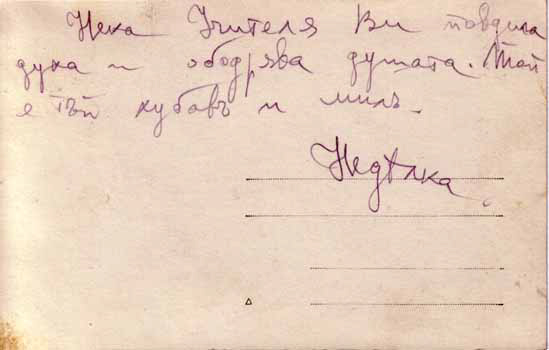 Нека Учителя Ви повдига
духа и ободрява душата. Той
е тъй хубавъ и милъ.
Недѣлка